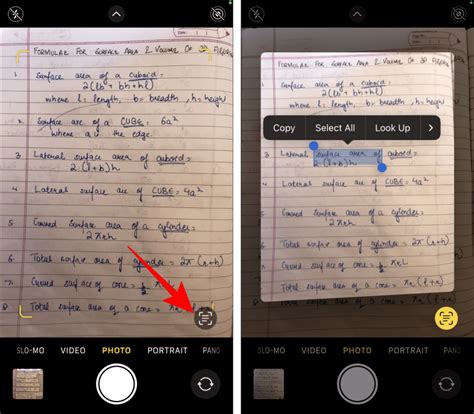 Date:
FORMULAE FOR SURFACE AREA & VOLUME OF 3D
1 Surface area of a cuboid =
2(lb + bh + hl)
where l = length, b = breadth, h = height
2. Surface are of a CUBE = 6a²
where a is the edge.
3 Lateral surface area of cuboid =
2 (l+b)h
4 Lateral surface are of CUBE = 4a²
5 Curved Surface area of a cylinder =
2πrh
6. Total surface area of cylinder = 2π (r+h)
7. Curved surface of cone = ½ πrl
8 Total surface area of a cone = πr
SLO-MO VIDEO PHOTO PORTRAIT PANO
FORMULAE FOR SURFACE AREA & VOLUME OF 3D FIGURES
1 Surface area of a cuboid =
2(lb + bh + hl)
Copy Select All Look Up
3 Lateral surface area of cuboid =
2 (l+b)h
4 Lateral surface are of CUBE = 4a²
5 Curved Surface area of a cylinder =
2πrh
6. Total surface area of cylinder = 2π (r+h)
7. Curved surface of cone = ½ πrl
8 Total surface area of a cone = πr (l+r)
SLO-MO VIDEO PHOTO PORTRAIT PANO